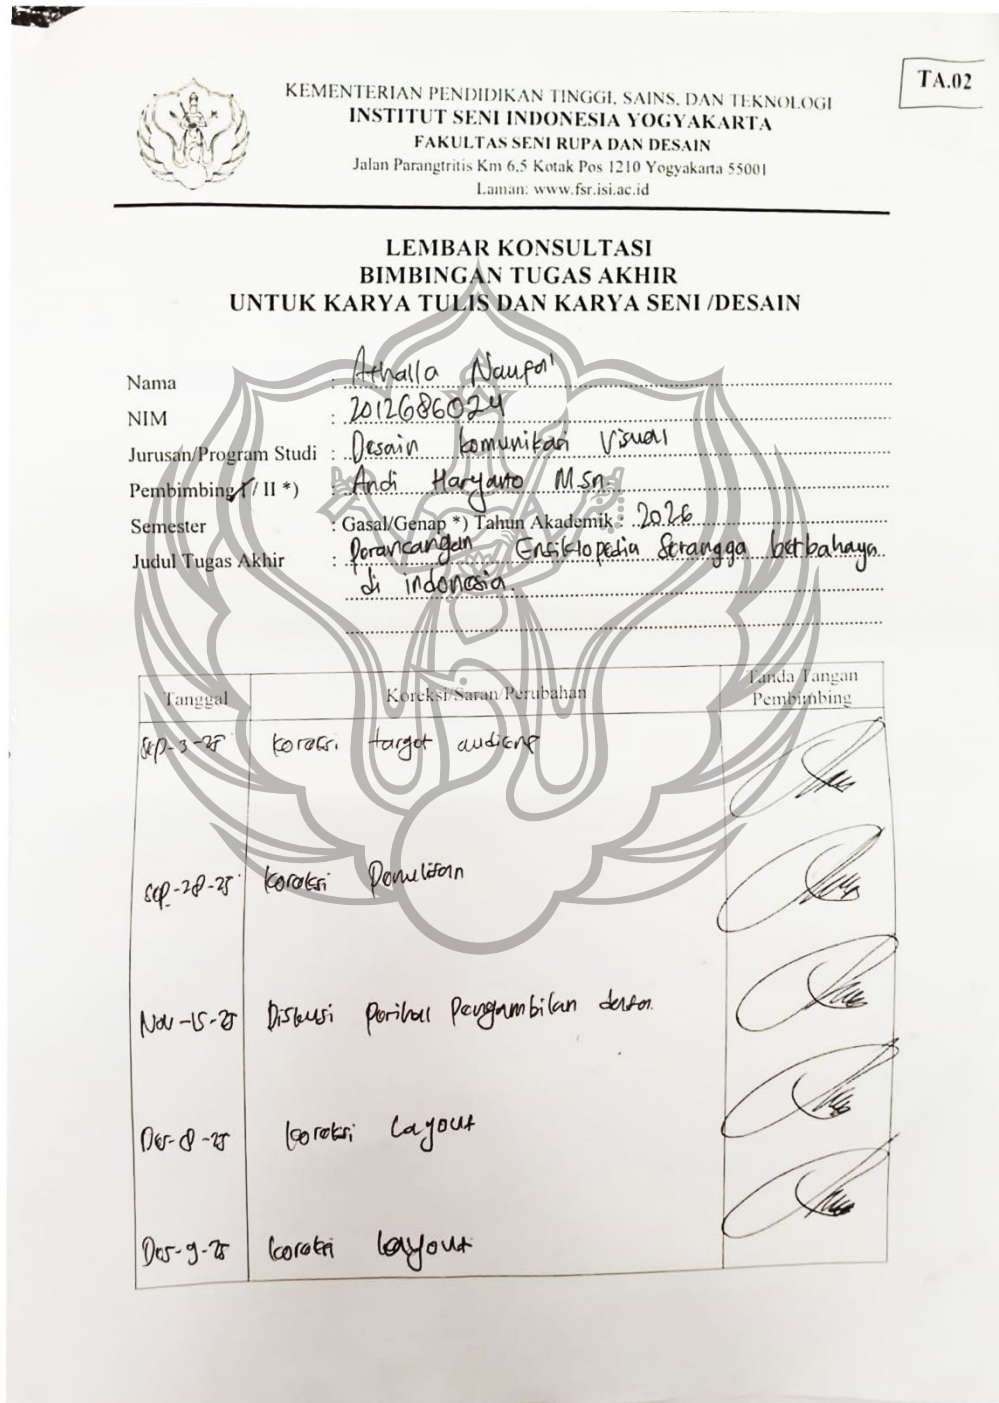 TA.02
KEMENTERIAN PENDIDIKAN TINGGI, SAINS, DAN TEKNOLOGI
INSTITUT SENI INDONESIA YOGYAKARTA
FAKULTAS SENI RUPA DAN DESAIN
Jalan Parangtritis Km 6,5 Kotak Pos 1210 Yogyakarta 55001
Laman: www.fsr.isi.ac.id
LEMBAR KONSULTASI
BIMBINGAN TUGAS AKHIR
UNTUK KARYA TULIS DAN KARYA SENI /DESAIN
Nama : Athalla Naufal
NIM : 2012686024
Jurusan/Program Studi : Desain Komunikasi Visual
Pembimbing I / II *) : Andi Haryanto M.Sn
Semester : Gasal/Genap *) Tahun Akademik : 2026
Judul Tugas Akhir : Perancangan Ensiklopedia Serangga berbahaya
di indonesia.
Tanggal Koreksi/Saran/Perubahan Tanda Tangan
Pembimbing
Sep-3-25 koreksi target audiens
Sep-28-25 koreksi Penulisan
Nov-15-25 Diskusi perihal pengambilan data.
Des-8-25 koreksi Layout
Des-9-25 koreksi layout